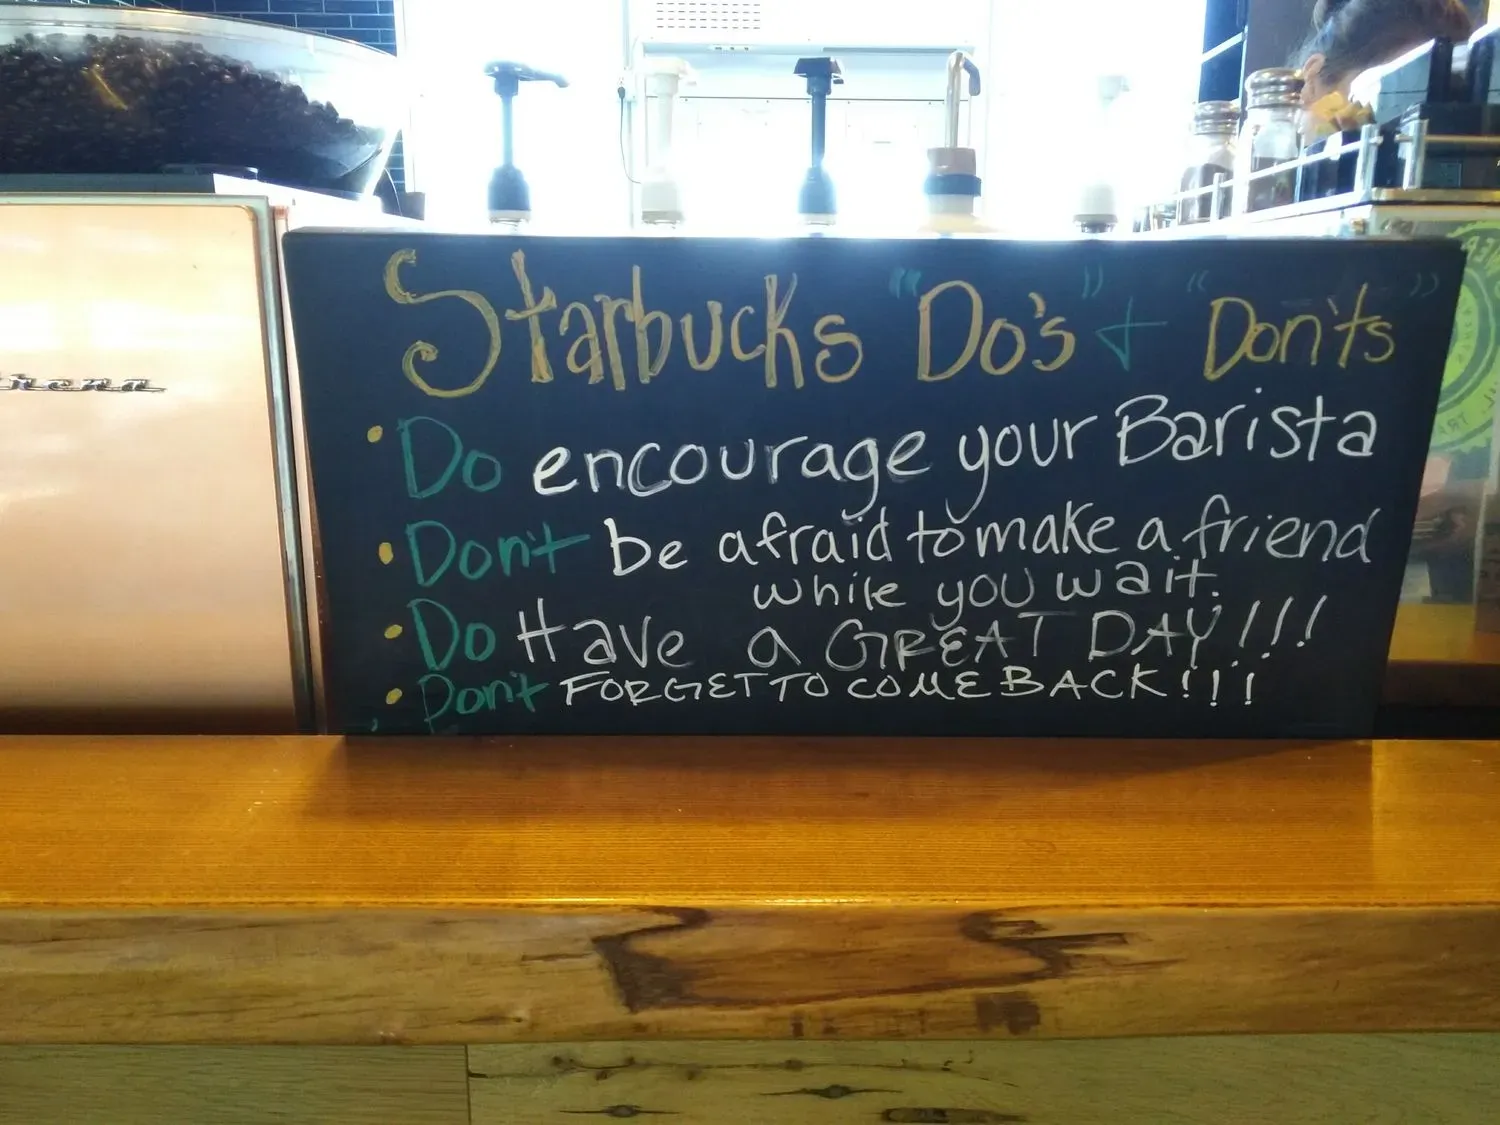 Starbucks "Do's" + "Don'ts"
• Do encourage your Barista
• Don't be afraid to make a friend
while you wait.
• Do Have a GREAT DAY!!!
• Don't FORGET TO COME BACK!!!